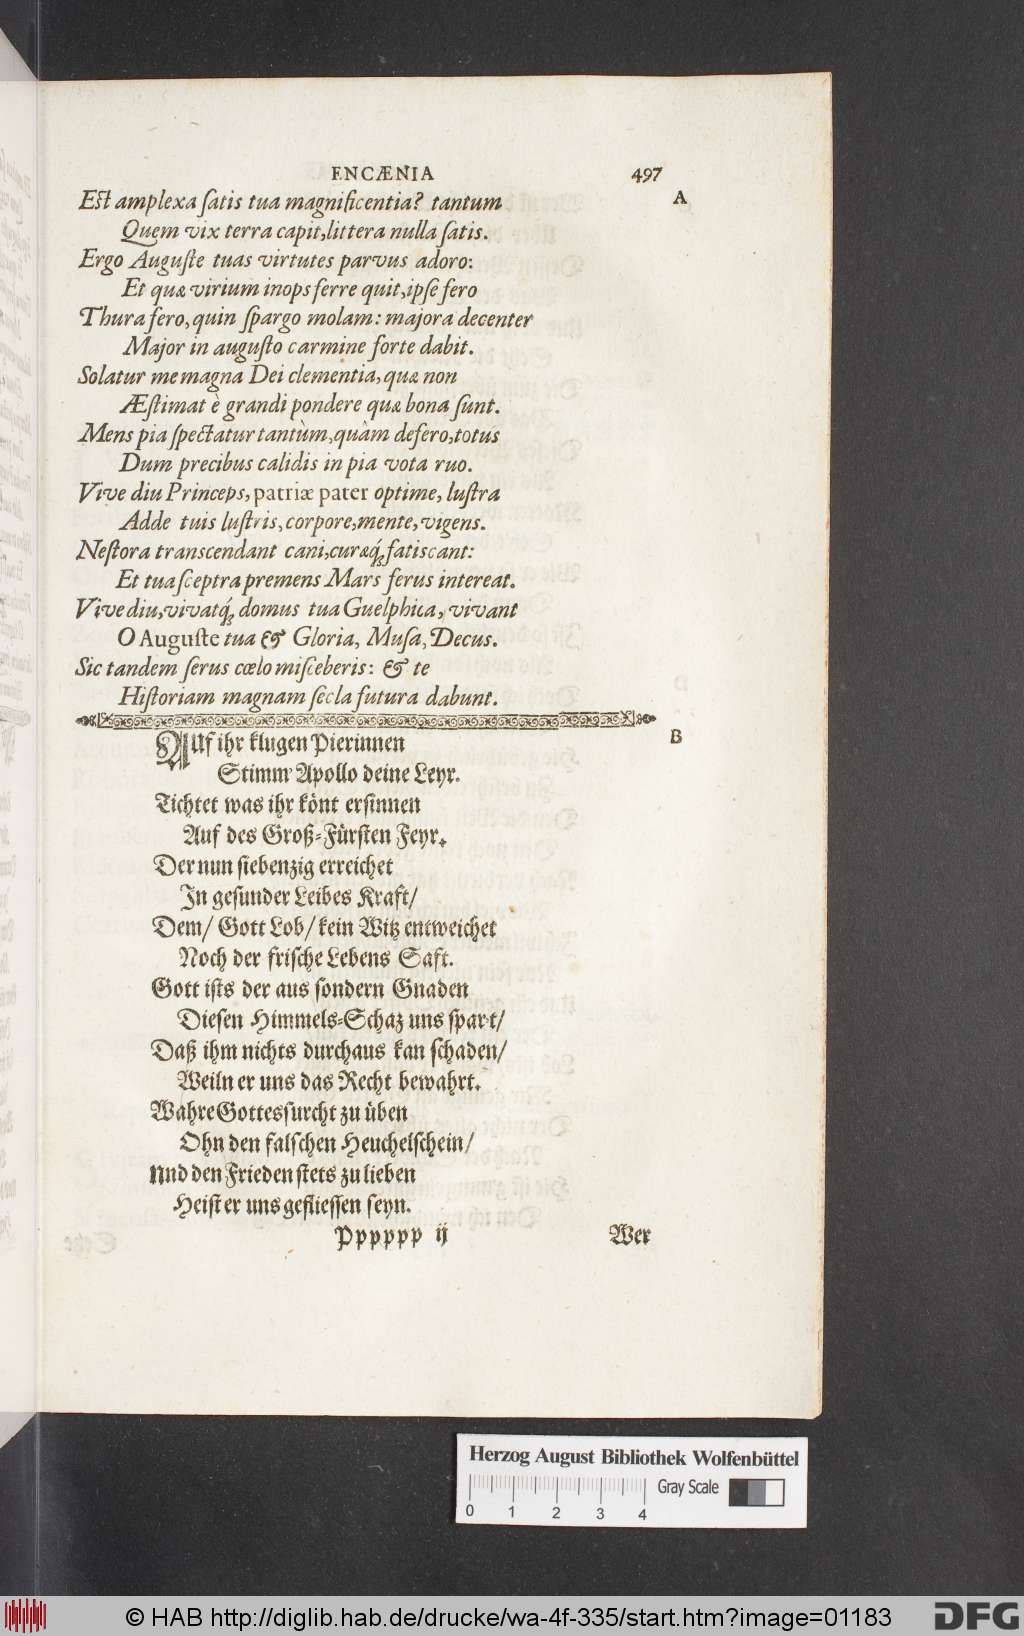 ENCÆNIA 497
Est amplexa ſatis tua magnificentia? tantum A
Quem vix terra capit, littera nulla ſatis.
Ergo Auguſte tuas virtutes parvus adoro:
Et quæ virium inops ferre quit, ipſe fero
Thura fero, quin ſpargo molam: majora decenter
Major in auguſto carmine forte dabit.
Solatur me magna Dei clementia, quæ non
Æſtimat è grandi pondere quæ bona ſunt.
Mens pia ſpectatur tantùm, quàm defero, totus
Dum precibus calidis in pia vota ruo.
Vive diu Princeps, patriæ pater optime, luſtra
Adde tuis luſtris, corpore, mente, vigens.
Neſtora transcendant cani, curæq́ꝫ fatiscant:
Et tua ſceptra premens Mars ferus intereat.
Vive diu, vivatq́ꝫ domus tua Guelphica, vivant
O Auguſte tua & Gloria, Muſa, Decus.
Sic tandem ſerus cœlo miſceberis: & te
Hiſtoriam magnam ſecla futura dabunt.
AUf ihr klugen Pierinnen B
Stimm Apollo deine Leyr.
Tichtet was ihr könt erſinnen
Auf des Groß-Fürſten Feyr.
Der nun ſiebenzig erreichet
In geſunder Leibes Kraft/
Dem/ Gott Lob/ kein Witz entweichet
Noch der friſche Lebens Saft.
Gott iſts der aus ſondern Gnaden
Dieſen Himmels-Schaz uns ſpart/
Daß ihm nichts durchaus kan ſchaden/
Weiln er uns das Recht bewahrt.
Wahre Gottesfurcht zu üben
Ohn den falſchen Heuchelſchein/
Und den Frieden ſtets zu lieben
Heiſt er uns gefliesſen ſeyn.
Pppppp ij Wer
Herzog August Bibliothek Wolfenbüttel
Gray Scale
0 1 2 3 4
© HAB http://diglib.hab.de/drucke/wa-4f-335/start.htm?image=01183
DFG